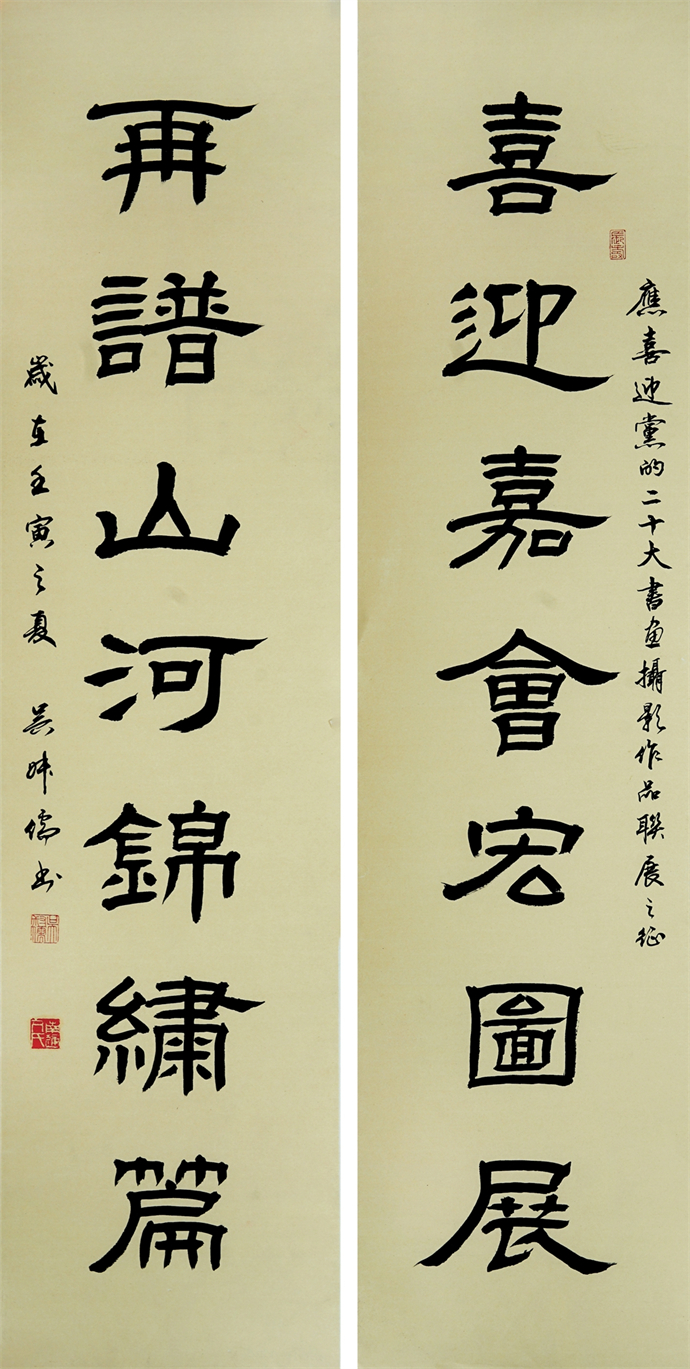 喜迎嘉會宏圖展
應喜迎黨的二十大書画攝影作品聯展之征
再譜山河錦繡篇
歲在壬寅之夏 吳儒書